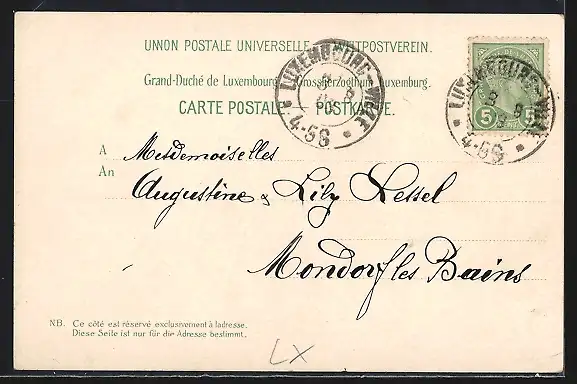 UNION POSTALE UNIVERSELLE. WELTPOSTVEREIN.
Grand-Duché de Luxembourg. Grossherzogthum Luxemburg.
CARTE POSTALE - POSTKARTE.
LUXEMBOURG-VILLE
4-5S
LUXEMBOURG-VILLE
4-5S
5 5
A Mesdemoiselles
An
Augustine & Lily Lessel
Mondorf les Bains
NB. Ce côté est réservé exclusivement à ladresse.
Diese Seite ist nur für die Adresse bestimmt.
LX